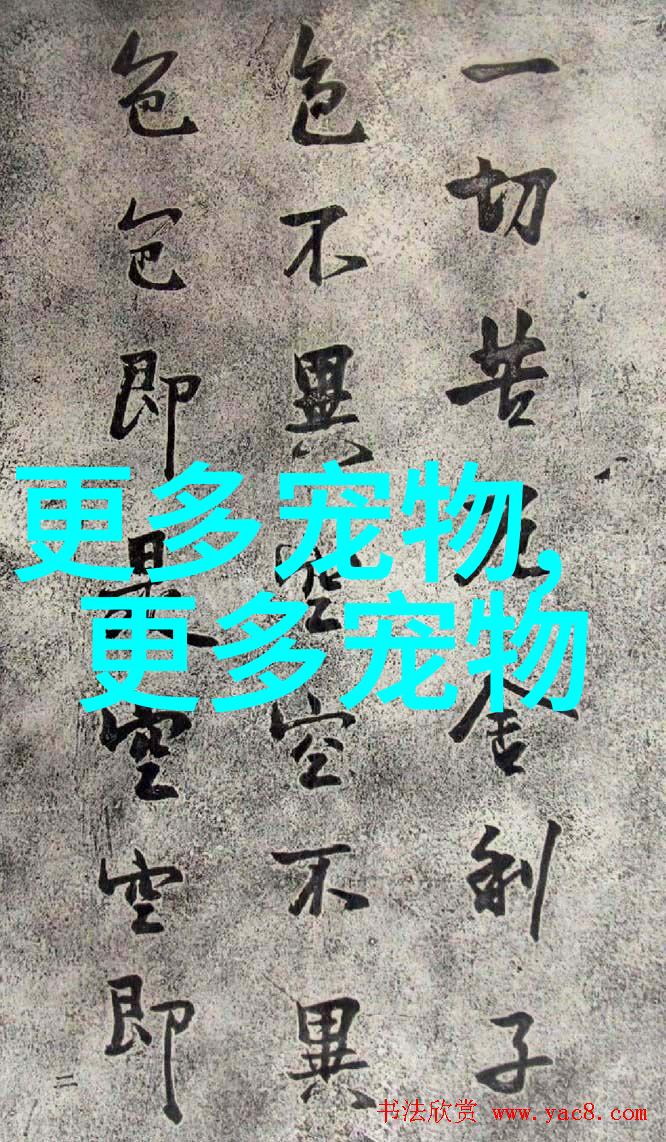 一切苦厄舍利子
色不異空空不異
色色即是空空即
二
更多宠物,
更多宠物
书法欣赏 www.yac8.com